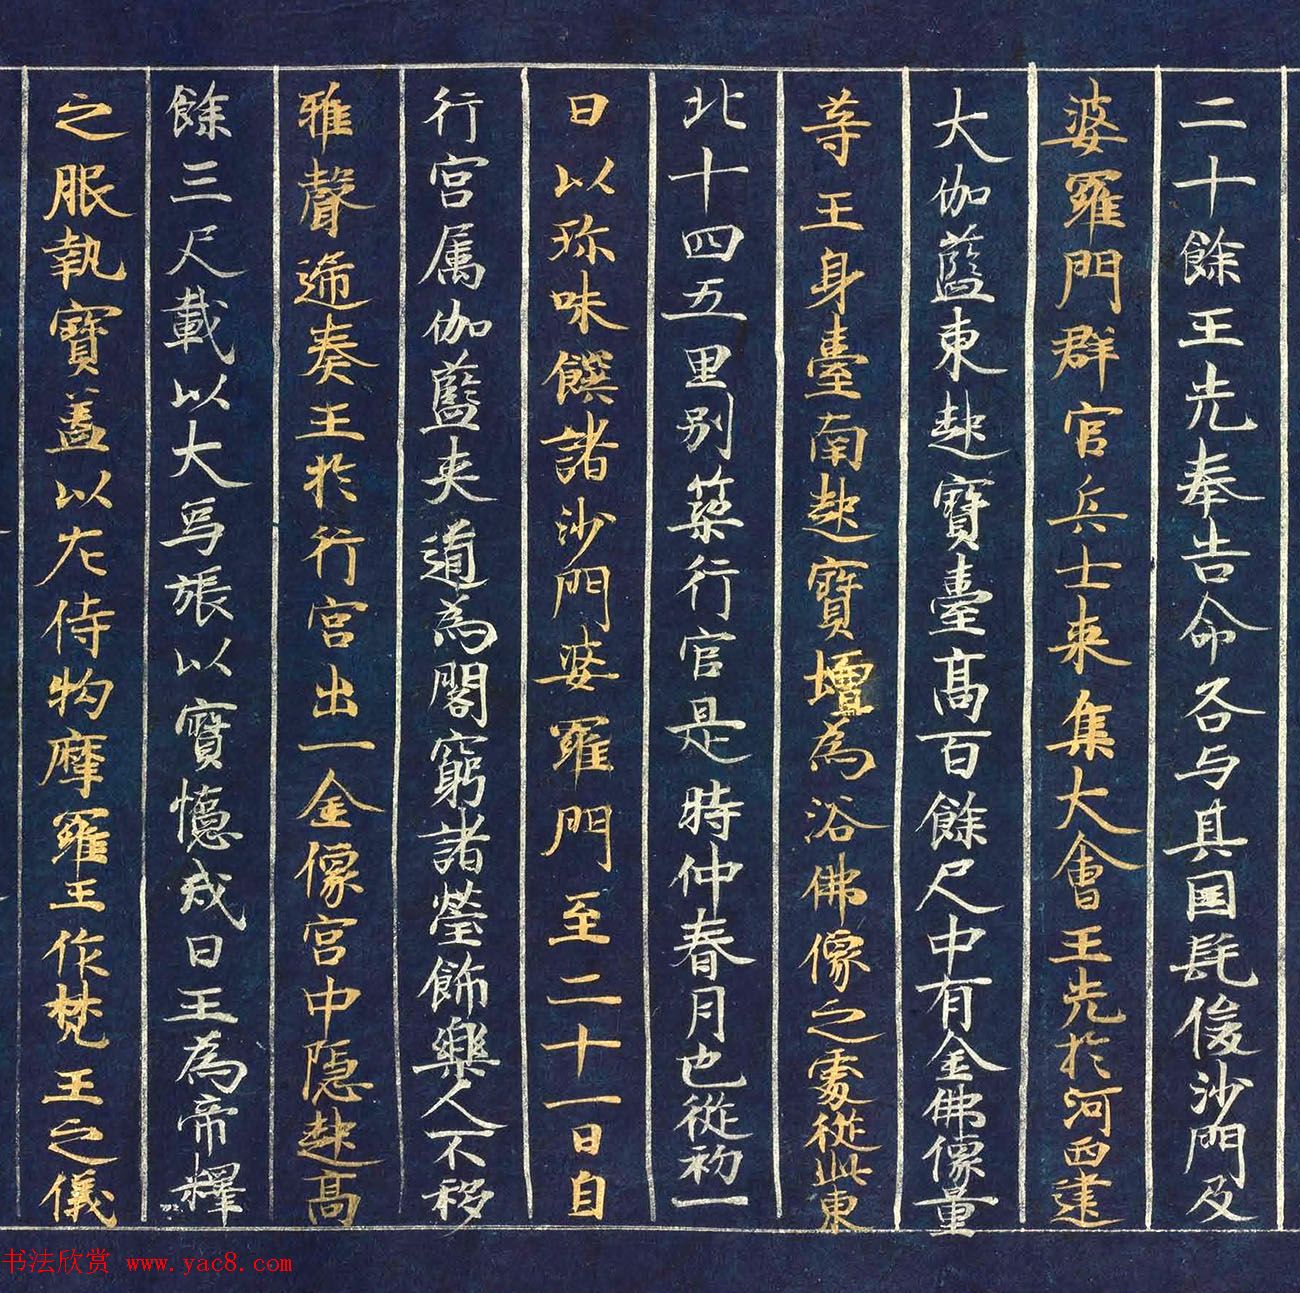 二十餘王先奉告命各与其国髦俊沙門及
婆羅門群官兵士来集大會王先於河西建
大伽藍東趂寳臺髙百餘尺中有金佛像量
等王身臺南趂寳壇為浴佛像之處從此東
北十四五里别築行官是時仲春月也從初一
日以珎味饌諸沙門婆羅門至二十一日自
行宫属伽藍夾道為閣窮諸瑩飾樂人不移
雅聲遞奏王於行宫出一金像宫中隠趂髙
餘三尺載以大馬張以寳幰戒日王為帝釋
之服執寳盖以左侍拘摩羅王作梵王之儀
书法欣赏 www.yac8.com